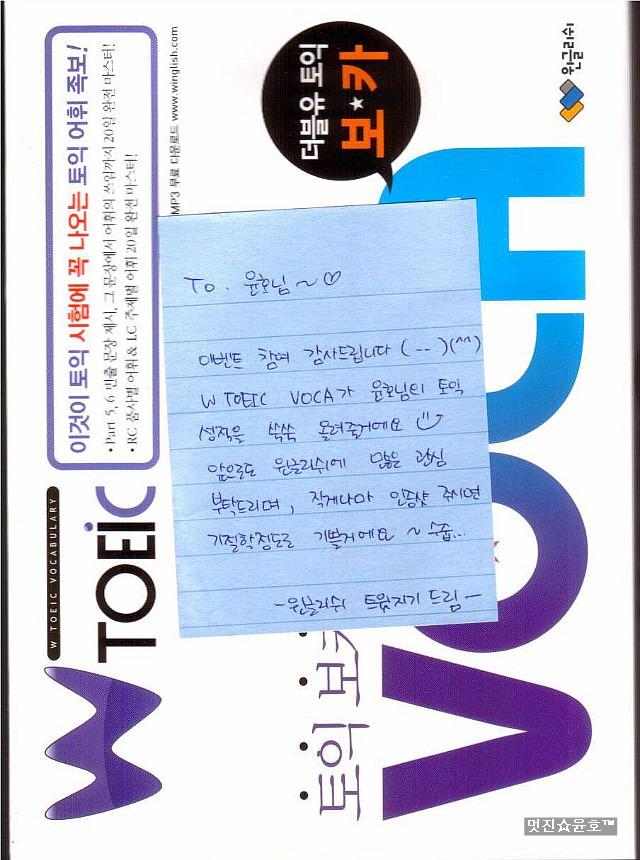 To. 윤호님 ~ ♡
이벤트 참여 감사드립니다 (--)(^^)
W TOEIC VOCA가 윤호님의 토익
성적을 쑥쑥 올려줄거에요
앞으로도 윈글리쉬에 많은 관심
부탁드리며, 작게나마 인증샷 주시면
기절할정도로 기쁠거에요 ~ 수줍...
- 윈글리쉬 트윗지기 드림 -
이것이 토익 시험에 꼭 나오는 토익 어휘 족보!
• Part 5, 6 빈출 문장 제시, 그 문장에서 어휘의 쓰임까지 20일 완전 마스터!
• RC 품사별 어휘 & LC 주제별 어휘 20일 완전 마스터!
MP3 무료 다운로드 www.winglish.com
W TOEIC VOCABULARY
W TOEIC
더블유 토익
보★카
윈글리쉬
토익 보카
VOCA
멋진☆윤호™